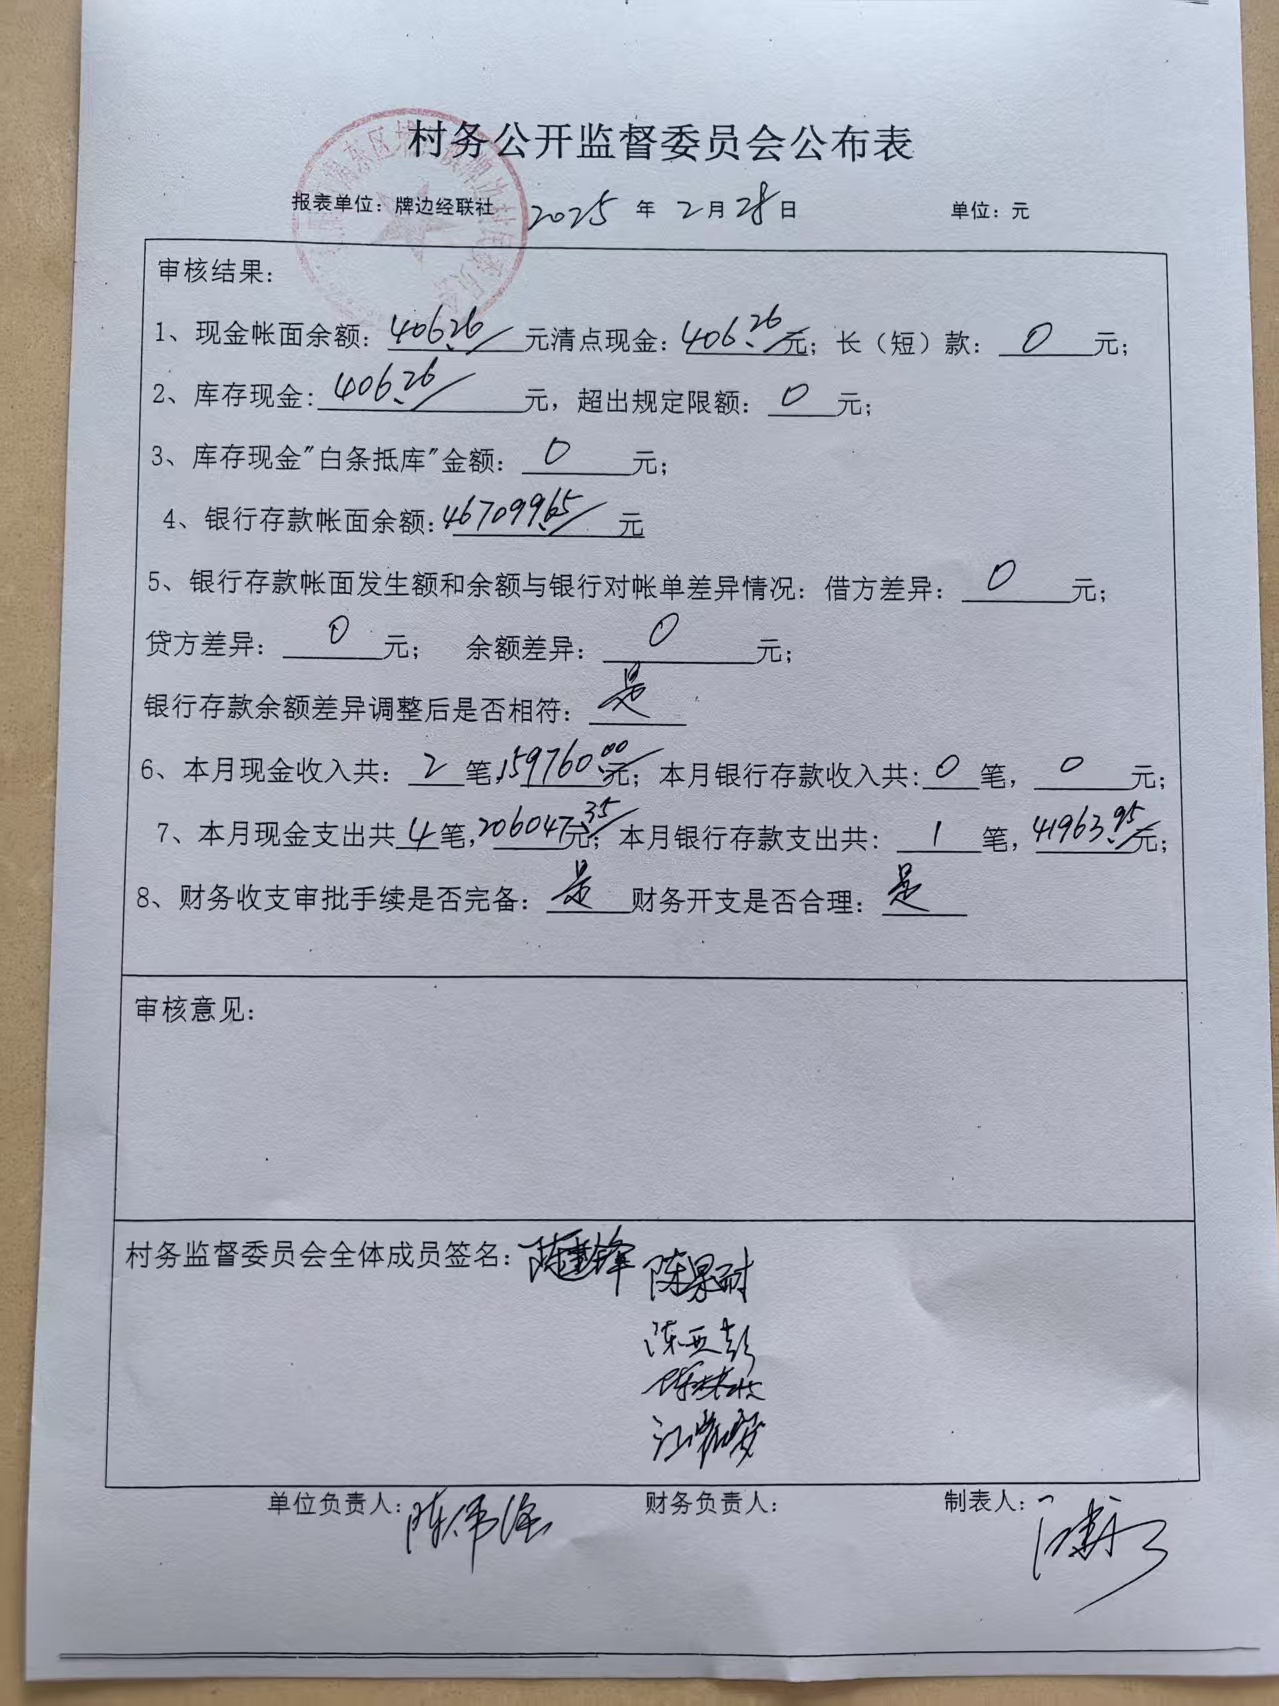 村务公开监督委员会公布表
报表单位：牌边经联社 2025 年 2 月 28 日 单位：元
审核结果：
1、现金帐面余额：406.26元清点现金：406.26元；长（短）款：0元；
2、库存现金：406.26元，超出规定限额：0元；
3、库存现金"白条抵库"金额：0元；
4、银行存款帐面余额：467099.65元
5、银行存款帐面发生额和余额与银行对帐单差异情况：借方差异：0元；
贷方差异：0元； 余额差异：0元；
银行存款余额差异调整后是否相符：是
6、本月现金收入共：2笔，159760.00元；本月银行存款收入共：0笔，0元；
7、本月现金支出共4笔，206047.35元；本月银行存款支出共：1笔，41963.95元；
8、财务收支审批手续是否完备：是 财务开支是否合理：是
审核意见：
村务监督委员会全体成员签名：陈建锋 陈景耐
陈亚彭
单位负责人：陈伟强 财务负责人： 制表人：